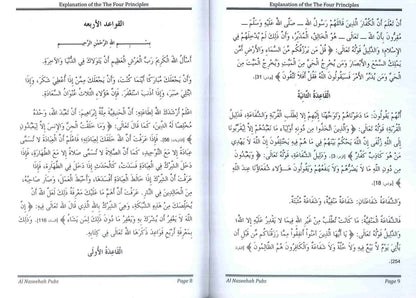 Explanation of the The Four Principles
القواعد الأربعة
بِسْمِ اللهِ الرَّحْمَنِ الرَّحِيمِ
أَسْأَلُ اللهَ الْكَرِيمَ رَبَّ الْعَرْشِ الْعَظِيمِ أَنْ يَتَوَلَّاكَ فِي الدُّنْيَا وَالْآخِرَةِ،
وَأَنْ يَجْعَلَكَ مُبَارَكًا أَيْنَمَا كُنْتَ، وَأَنْ يَجْعَلَكَ مِمَّنْ إِذَا أُعْطِيَ شَكَرَ، وَإِذَا
ابْتُلِيَ صَبَرَ، وَإِذَا أَذْنَبَ اسْتَغْفَرَ، فَإِنَّ هَؤُلَاءِ الثَّلَاثَ عُنْوَانُ السَّعَادَةِ.
اعْلَمْ أَرْشَدَكَ اللهُ لِطَاعَتِهِ: أَنَّ الْحَنِيفِيَّةَ مِلَّةَ إِبْرَاهِيمَ: أَنْ تَعْبُدَ اللهَ، وَحْدَهُ
مُخْلِصًا لَهُ الدِّينَ، كَمَا قَالَ تَعَالَى: ﴿ وَمَا خَلَقْتُ الْجِنَّ وَالْإِنْسَ إِلَّا لِيَعْبُدُونِ
﴾ 56]. فَإِذَا عَرَفْتَ أَنَّ اللهَ خَلَقَكَ لِعِبَادَتِهِ؛ فَاعْلَمْ أَنَّ الْعِبَادَةَ لَا تُسَمَّى
عِبَادَةً إِلَّا مَعَ التَّوْحِيدِ، كَمَا أَنَّ الصَّلَاةَ لَا تُسَمَّى صَلَاةً إِلَّا مَعَ الطَّهَارَةِ، فَإِذَا
دَخَلَ الشِّرْكُ فِي الْعِبَادَةِ فَسَدَتْ، كَالْحَدَثِ إِذَا دَخَلَ فِي الطَّهَارَةِ، فَإِذَا
عَرَفْتَ أَنَّ الشِّرْكَ إِذَا خَالَطَ الْعِبَادَةَ أَفْسَدَهَا، وَأَحْبَطَ الْعَمَلَ، وَصَارَ صَاحِبُهُ،
مِنَ الْخَالِدِينَ فِي النَّارِ. عَرَفْتَ أَنَّ أَهَمَّ مَا عَلَيْكَ مَعْرِفَةُ ذَلِكَ، لَعَلَّ اللهَ أَنْ
يُخَلِّصَكَ مِنْ هَذِهِ الشَّبَكَةِ، وَهِيَ الشِّرْكُ بِاللهِ الَّذِي قَالَ اللهُ تَعَالَى فِيهِ: ﴿ إِنَّ
اللهَ لَا يَغْفِرُ أَنْ يُشْرَكَ بِهِ وَيَغْفِرُ مَا دُونَ ذَلِكَ لِمَنْ يَشَاءُ ﴾ 116]. وَذَلِكَ
بِمَعْرِفَةِ أَرْبَعِ قَوَاعِدَ ذَكَرَهَا اللهُ تَعَالَى فِي كِتَابِهِ.
الْقَاعِدَةُ الْأُولَى
Al Naseehah Pubs
Page 8
Explanation of the The Four Principles
أَنْ تَعْلَمَ أَنَّ الْكُفَّارَ الَّذِينَ قَاتَلَهُمْ رَسُولُ اللهِ – صَلَّى اللهُ عَلَيْهِ وَسَلَّمَ –
مُقِرُّونَ بِأَنَّ اللهَ تَعَالَى – هُوَ الْخَالِقُ، الْمُدَبِّرُ، وَأَنَّ ذَلِكَ لَمْ يُدْخِلْهُمْ فِي
الْإِسْلَامِ، وَالدَّلِيلُ قَوْلُهُ تَعَالَى: ﴿ قُلْ مَنْ يَرْزُقُكُمْ مِنَ السَّمَاءِ وَالْأَرْضِ أَمَّنْ
يَمْلِكُ السَّمْعَ وَالْأَبْصَارَ وَمَنْ يُخْرِجُ الْحَيَّ مِنَ الْمَيِّتِ وَيُخْرِجُ الْمَيِّتَ مِنَ
الْحَيِّ وَمَنْ يُدَبِّرُ الْأَمْرَ فَسَيَقُولُونَ اللهُ فَقُلْ أَفَلَا تَتَّقُونَ ﴾ 31].
الْقَاعِدَةُ الثَّانِيَةُ
أَنَّهُمْ يَقُولُونَ: مَا دَعَوْنَاهُمْ وَتَوَجَّهْنَا إِلَيْهِمْ إِلَّا لِطَلَبِ الْقُرْبَةِ وَالشَّفَاعَةِ، فَدَلِيلُ
الْقُرْبَةِ قَوْلُهُ تَعَالَى: ﴿ وَالَّذِينَ اتَّخَذُوا مِنْ دُونِهِ أَوْلِيَاءَ مَا نَعْبُدُهُمْ إِلَّا لِيُقَرِّبُونَا
إِلَى اللهِ زُلْفَى إِنَّ اللهَ يَحْكُمُ بَيْنَهُمْ فِي مَا هُمْ فِيهِ يَخْتَلِفُونَ إِنَّ اللهَ لَا يَهْدِي
مَنْ هُوَ كَاذِبٌ كَفَّارٌ ﴾ 3]. وَدَلِيلُ الشَّفَاعَةِ، قَوْلُهُ تَعَالَى: ﴿ وَيَعْبُدُونَ مِنْ
دُونِ اللهِ مَا لَا يَضُرُّهُمْ وَلَا يَنْفَعُهُمْ وَيَقُولُونَ هَؤُلَاءِ شُفَعَاؤُنَا عِنْدَ اللهِ
﴾ 18].
وَالشَّفَاعَةُ شَفَاعَتَانِ: شَفَاعَةٌ مَنْفِيَّةٌ، وَشَفَاعَةٌ مُثْبَتَةٌ.
فَالشَّفَاعَةُ الْمَنْفِيَّةُ: مَا كَانَتْ تُطْلَبُ مِنْ غَيْرِ اللهِ فِيمَا لَا يَقْدِرُ عَلَيْهِ إِلَّا اللهُ؛
وَالدَّلِيلُ قَوْلُهُ تَعَالَى: ﴿ يَا أَيُّهَا الَّذِينَ آمَنُوا أَنْفِقُوا مِمَّا رَزَقْنَاكُمْ مِنْ قَبْلِ أَنْ
يَأْتِيَ يَوْمٌ لَا بَيْعٌ فِيهِ وَلَا خُلَّةٌ وَلَا شَفَاعَةٌ وَالْكَافِرُونَ هُمُ الظَّالِمُونَ ﴾
254].
Al Naseehah Pubs
Page 9